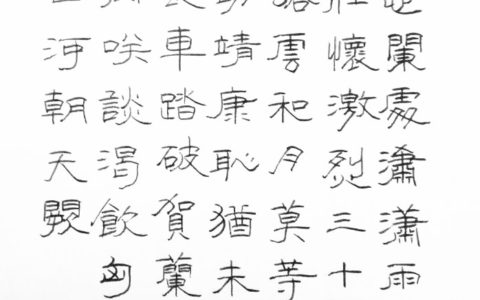 闌處瀟瀟雨
懷激烈三十
雲和月莫等
靖康恥猶未
車踏破賀蘭
咲談渴飲匈
河朝天闕